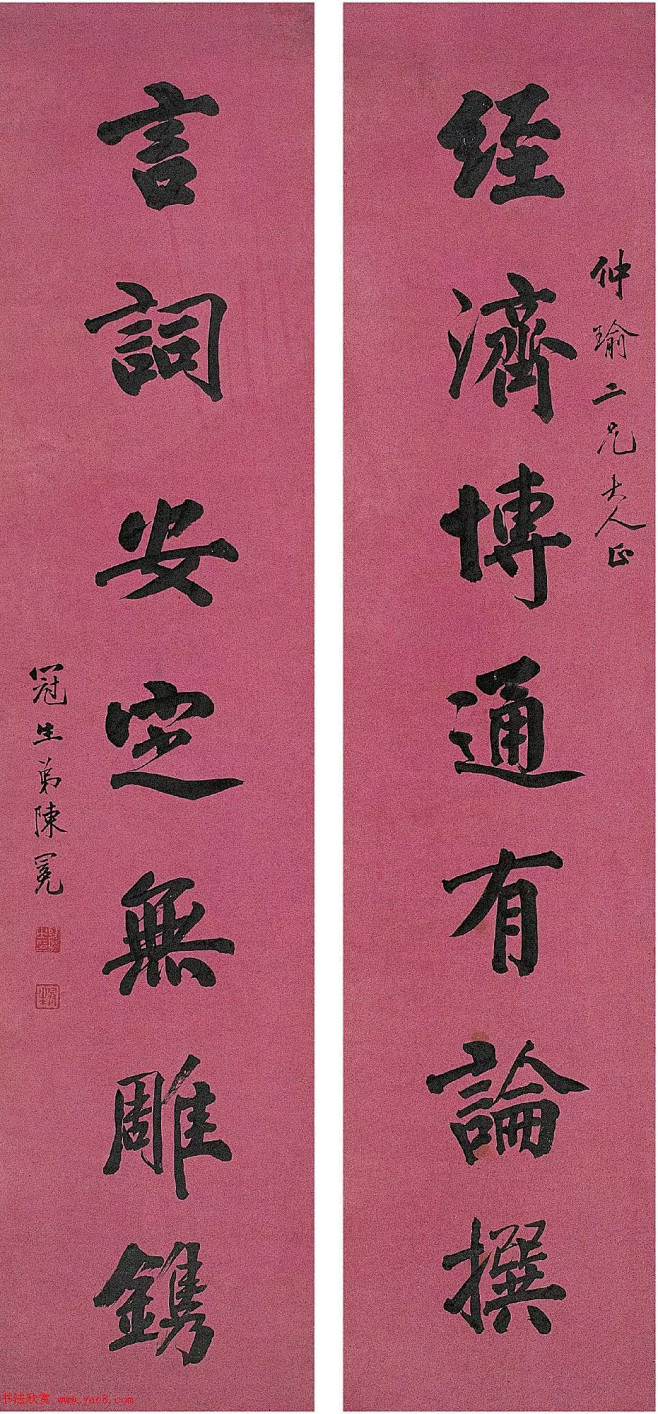 仲瑜二兄大人正
經濟博通有論撰
言詞安定無雕鐫
冠生弟陳冕
书法欣赏 www.yac8.com